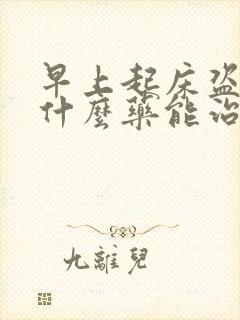 早上起床盗
什麼藥能治
九離兒